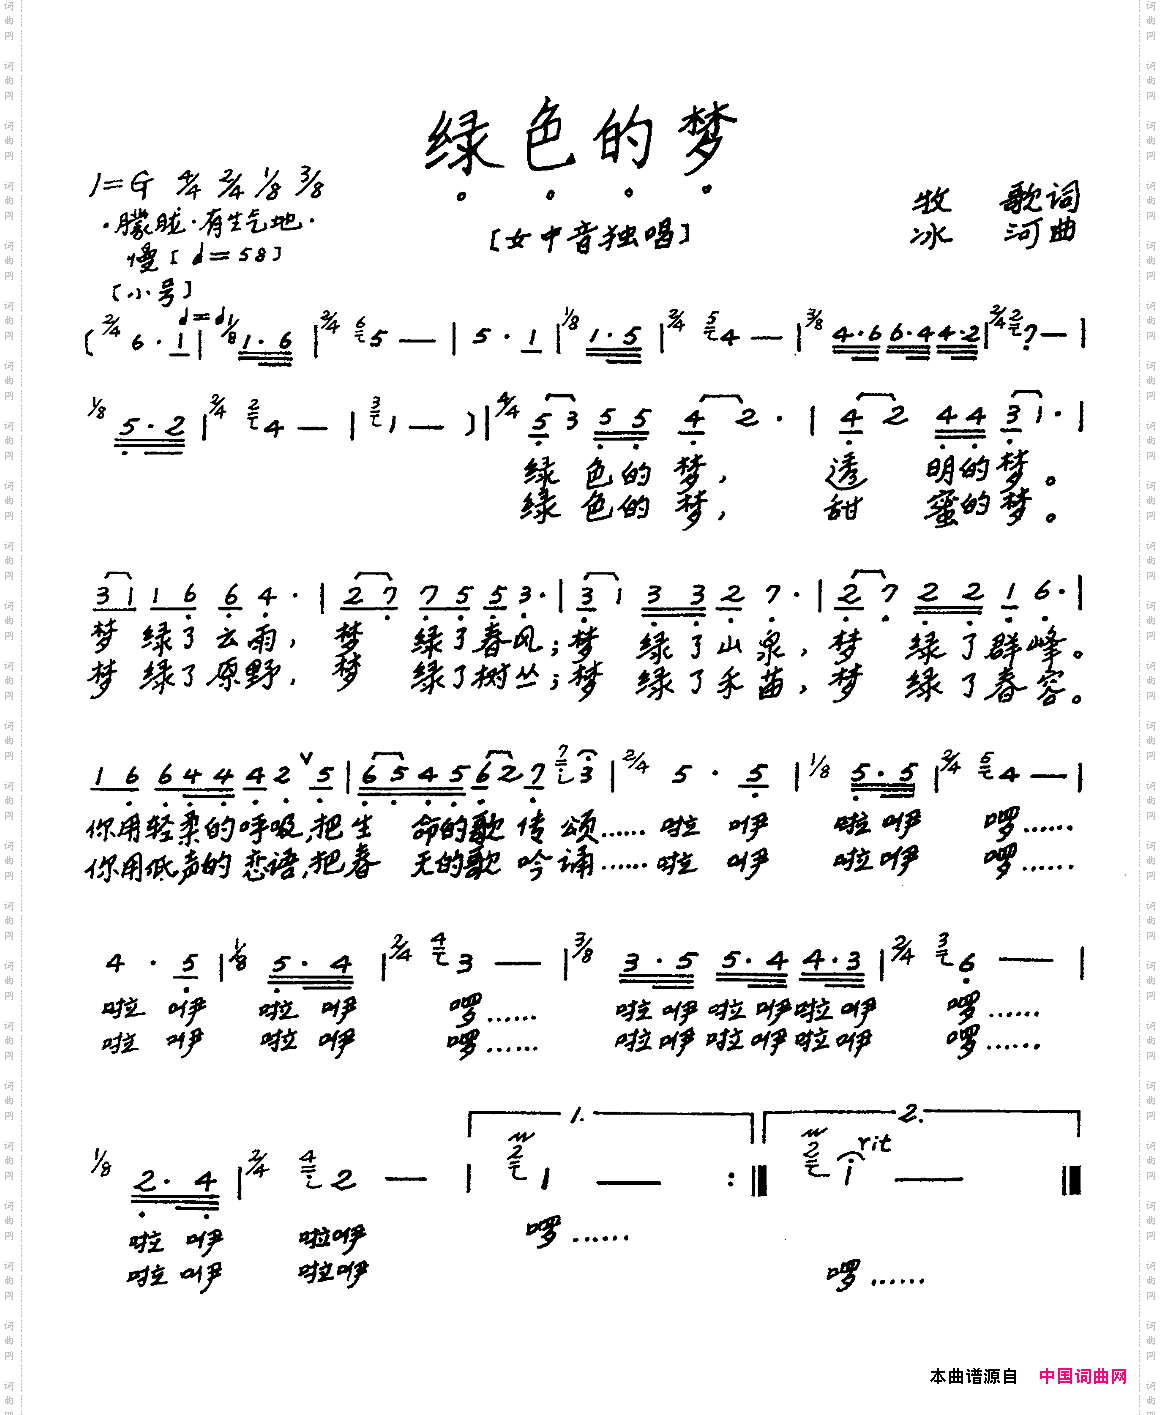 绿色的梦
1=G 4/4 2/4 1/8 3/8
·朦胧·有生气地·
慢[♩=58]
[小号]
[女中音独唱]
牧 歌词
冰 河曲
♩=♩
(2/4 6·1|1/8 1·6|2/4 5—|5·1|1/8 1·5|2/4 4—|3/8 4·6 6·4 4·2|2/4 7—|
1/8 5·2|2/4 4—|1—)|4/4 5 3 5 5 4 2·|4 2 4 4 3 1·|
绿 色的 梦, 透 明的梦。
绿 色的 梦, 甜 蜜的梦。
3 1 1 6 6 4·|2 7 7 5 5 3·|3 1 3 3 2 7·|2 7 2 2 1 6·|
梦 绿了云雨, 梦 绿了春风;梦 绿了山泉,梦 绿了群峰。
梦 绿了原野, 梦 绿了树丛;梦 绿了禾苗,梦 绿了春容。
1 6 6 4 4 4 2 V 5|6 5 4 5 6 2 7 3|2/4 5·5|1/8 5·5|2/4 4—|
你用轻柔的呼吸,把生 命的歌传颂……啦 咿 啦咿 啰……
你用低声的恋语,把春 天的歌吟诵……啦 咿 啦咿 啰……
4·5|1/8 5·4|2/4 3—|3/8 3·5 5·4 4·3|2/4 6—|
啦 咿 啦 咿 啰…… 啦咿啦咿啦咿 啰……
啦 咿 啦 咿 啰…… 啦咿啦咿啦咿 啰……
1. 2.
rit
1/8 2·4|2/4 2—|1—:‖1—‖
啦 咿 啦咿 啰……
啦 咿 啦咿 啰……
本曲谱源自 中国词曲网